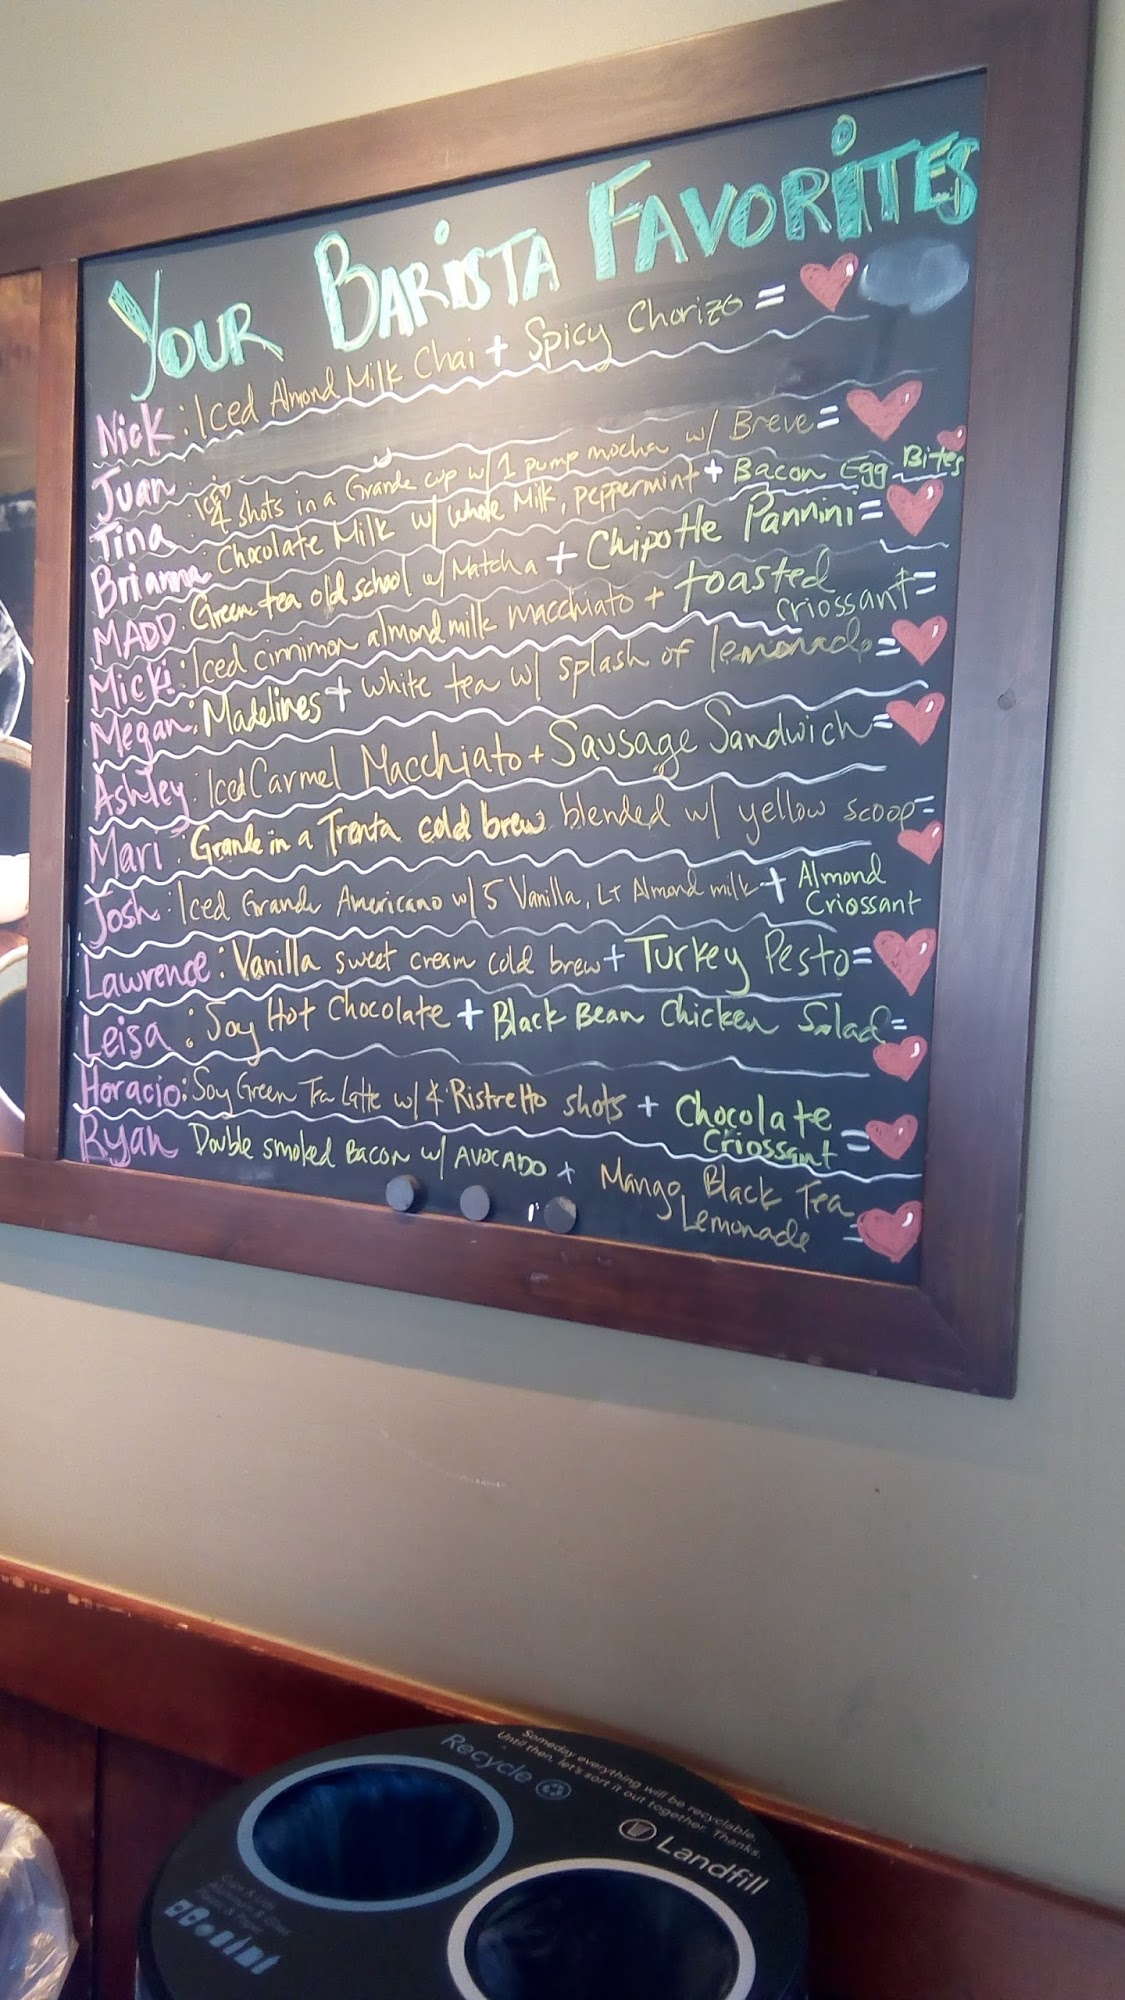 YOUR BARISTA FAVORITES
Nick: Iced Almond Milk Chai + Spicy Chorizo =
Juan:
Tina: 4 shots in a Grande cup w/ 1 pump mocha w/ Breve =
Brianna: Chocolate Milk w/ whole Milk, peppermint + Bacon Egg Bites
MADD: Green tea old school w/ Matcha + Chipotle Pannini =
Micki: Iced cinnimon almond milk macchiato + toasted
criossant =
Megan: Madelines + white tea w/ splash of lemonade =
Ashley: Iced Carmel Macchiato + Sausage Sandwich =
Mari: Grande in a Trenta cold brew blended w/ yellow scoop =
Josh: Iced Grande Americano w/ 5 Vanilla, Lt Almond milk + Almond
Criossant
Lawrence: Vanilla sweet cream cold brew + Turkey Pesto =
Leisa: Soy Hot Chocolate + Black Bean Chicken Salad =
Horacio: Soy Green Tea Latte w/ 4 Ristretto shots + Chocolate
Criossant =
Ryan Double smoked Bacon w/ AVOCADO + Mango Black Tea
Lemonade =
Someday everything will be recyclable.
Until then, let's sort it out together. Thanks.
Recycle
Landfill